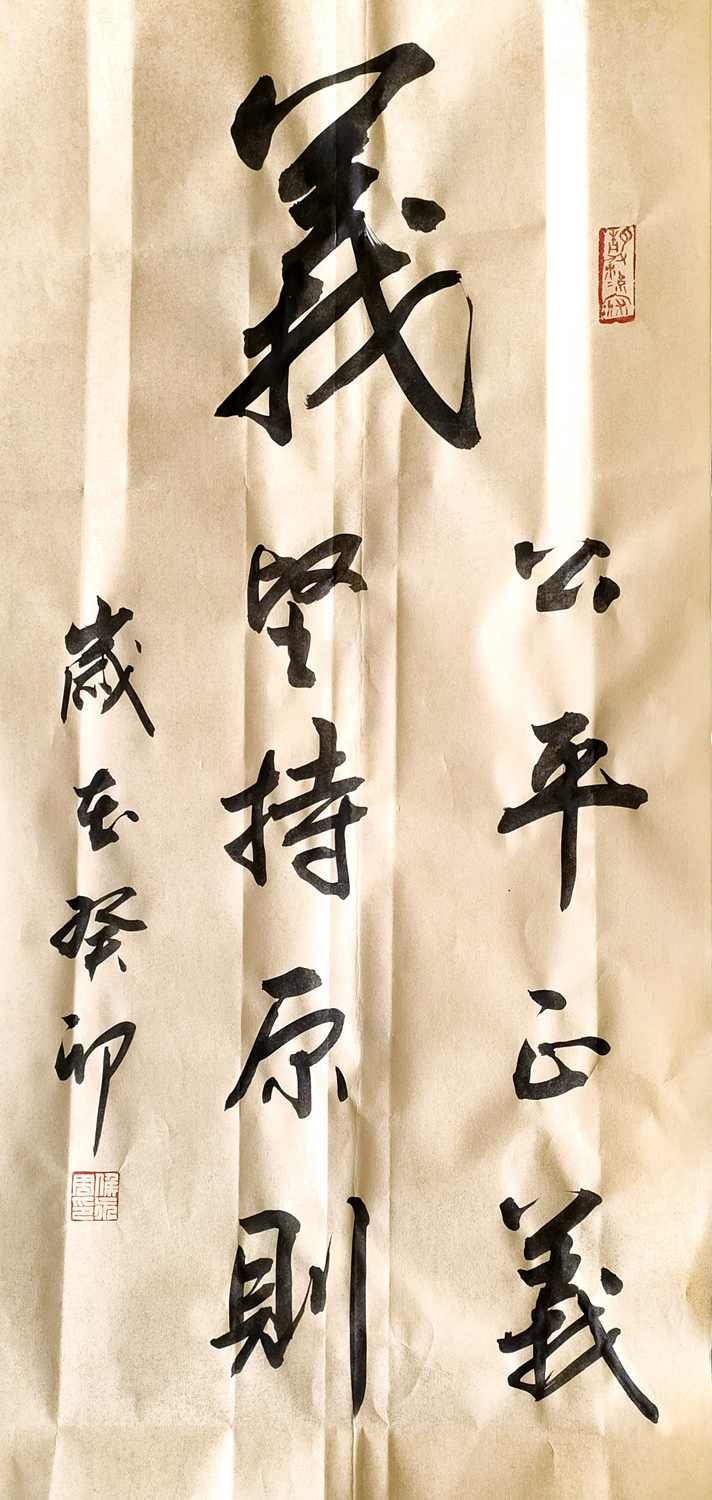 義
公平正義
堅持原則
歲在癸卯